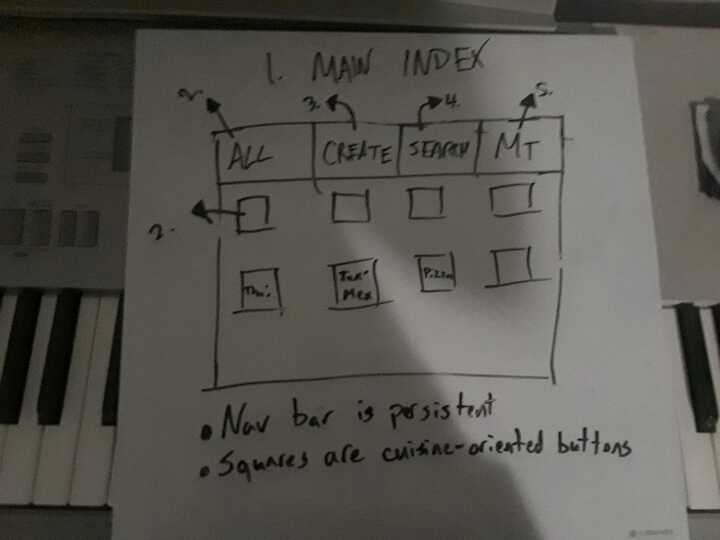 1. MAIN INDEX
2. 3. 4. 5.
ALL CREATE SEARCH MT
2.
Thai Tex- Pizza
Mex
• Nav bar is persistent
• Squares are cuisine-oriented buttons